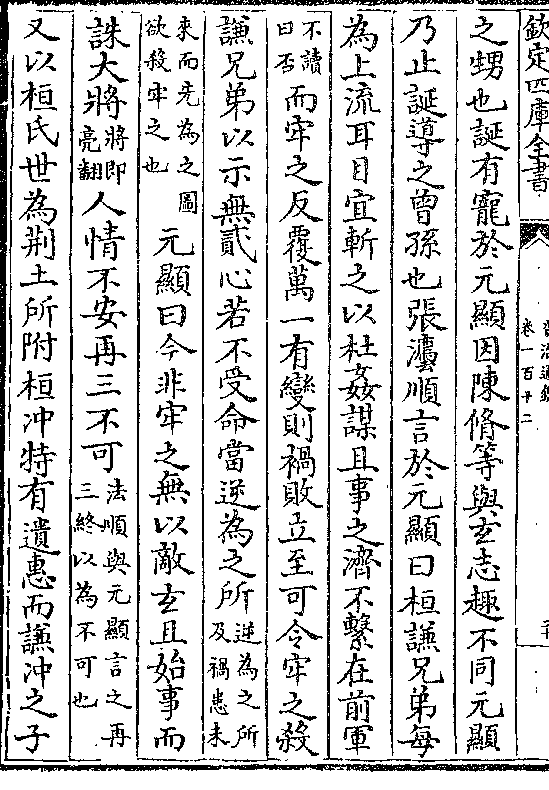 欽定四庫全書
資治通鑑
卷一百十二
之甥也誕有寵於元顯因陳脩等與玄志趣不同元顯
乃止誕導之曾孫也張灋順言於元顯曰桓謙兄弟每
為上流耳目宜斬之以杜姦謀且事之濟不繫在前軍
不讀曰否而牢之反覆萬一有變則禍敗立至可令牢之殺
謙兄弟以示無貳心若不受命當逆為之所逆為之所及禍患未
來而先為之圖欲殺牢之也元顯曰今非牢之無以敵玄且始事而
誅大將將即亮翻人情不安再三不可法順與元顯言之再三終以為不可也
又以桓氏世為荆土所附桓冲特有遺惠而謙冲之子